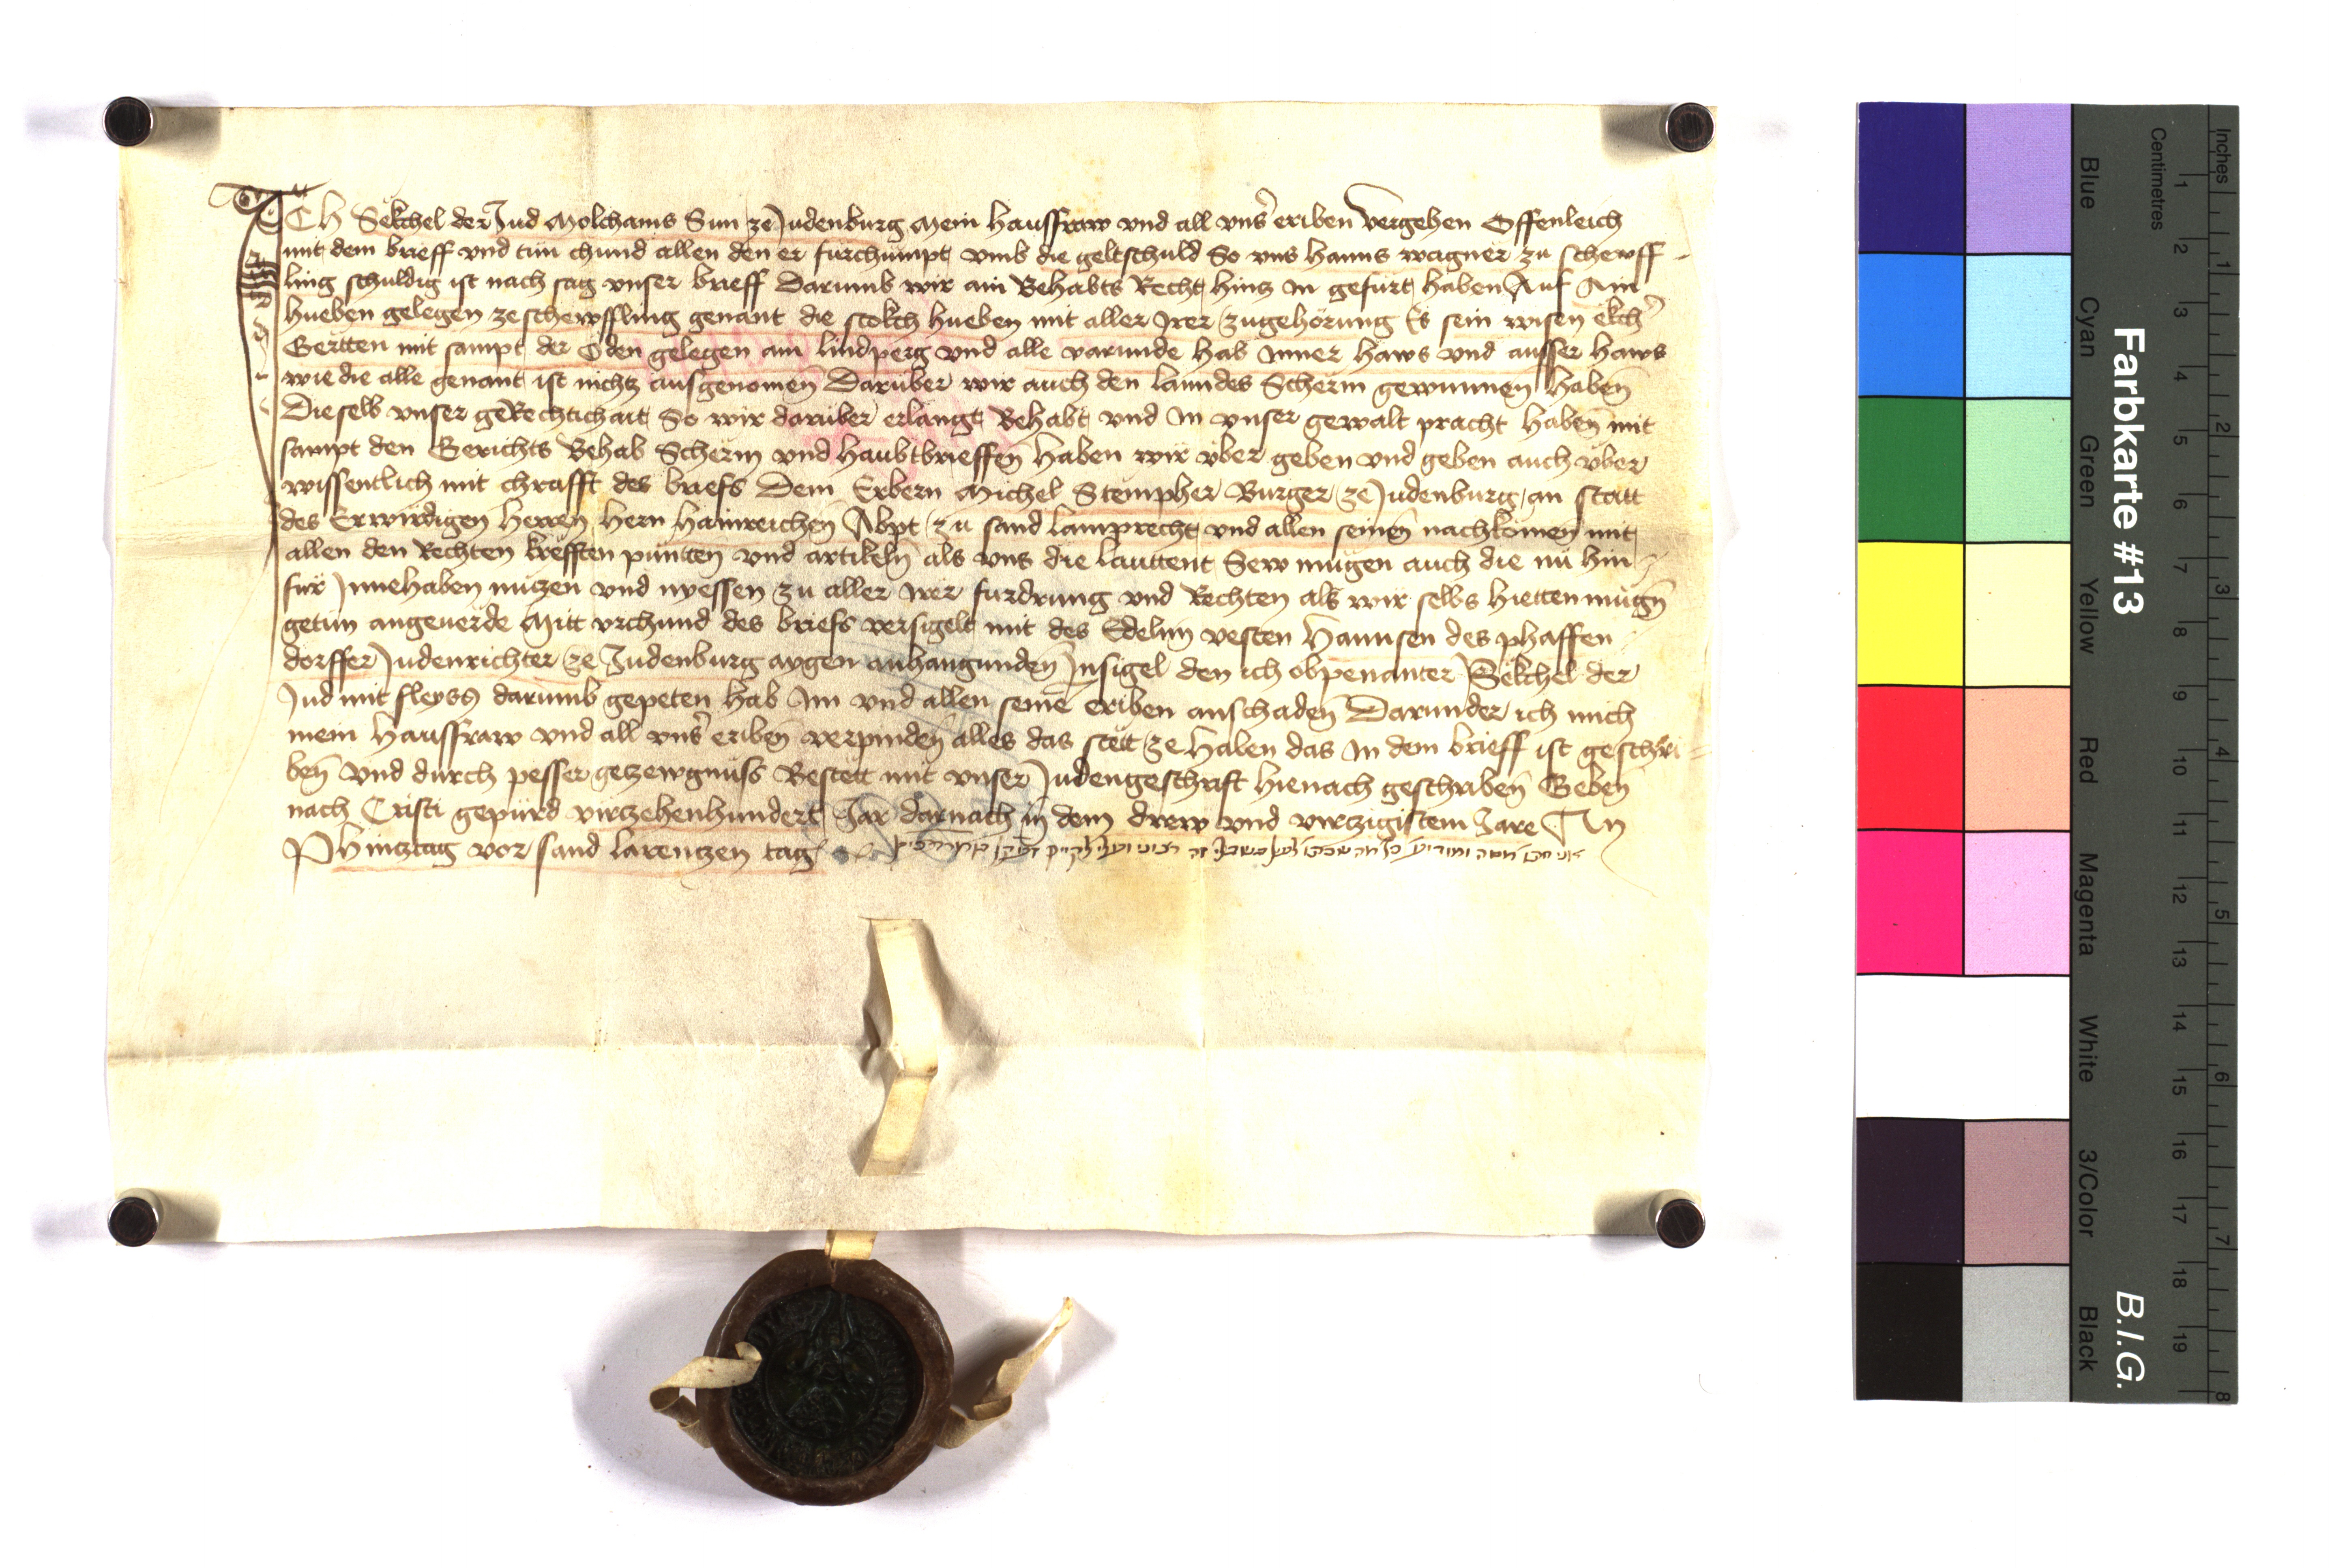 ICH Sëkchel der Jud Molchams Sun ze Judenburg Mein Hausfraw vnd all vns̾ eriben Vergehen Offenleich
mit dem brieff vnd tun chund allen den er furchumpt vmb die geltschuld So vns Hanns wagner zu schewff-
ling schuldig ist nach sag vnser brieff Darumb wir ain Behabts Recht hintz Im gefürt haben Auf Ain
hueben gelegen ze schewffling genant die stokch hueben mit aller Irer zugehörung Es sein wisen ëkch̾
Gertten mit sampt der Öden gelegen am lindperg vnd alle varunde hab Inner Haws vnd ausser Haws
wie die alle genant ist nichtz ausgenomen̄ Darüber wir auch den lanndes Scherm gewunnen haben̄
Dieselb vnser geRechtichait So wir darüber erlangt Behabt vnd In vnser gewalt pracht haben̄ mit
sampt den Gerichts Behab Scherm vnd Haubtbrieffen̄ Haben wir vber geben vnd geben auch vber
wissentlich mit chrafft des briefs Dem Erbern Michel Stempher Burger ze Judenburg an statt
des Erwirdigen Herren Hern Hainreichen Abpt zu sand lamprecht vnd allen seinen̄ nachkomen mit
allen den Rechten krefften püntten vnd artikeln̄ als vns die lauttent Sew mügen auch die nü hin-
für Innehaben nützen vnd nyessen zu aller Irer fürdrung vnd Rechten als wir selbs hietten mügn̄
getün angeuerde Mitt vrchund des briefs versigelt mit des Edelnn vesten Hannsen des phaffen-
dorffer Judenrichter ze Judenburg aygen anhangunden̄ Insigel den ich obpenanter Sëkchel der
Jud mit fleyss darumb gepeten hab Im vnd allen seinē eriben anschaden̄ Darunder ich mich
mein Hausfraw vnd all vns̾ eriben̄ verpinden̄ alles das stët ze halen das In dem brieff ist geschri=
ben̄ vnd durch pesser getzewgnüss Bestëtt mit vnser Judengeschrift hienach geschriben̄ Geben̄
nach Cristi gepürd virtzehenhundert Jar darnach in dem drew vnd virtzigistem Jare An
Phintztag vor sand larentzen tag
Farbkarte #13
B.I.G.
Inches 1 2 3 4 5 6 7 8
Centimetres 1 2 3 4 5 6 7 8 9 10 11 12 13 14 15 16 17 18 19
Blue Cyan Green Yellow Red Magenta White 3/Color Black